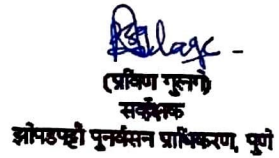 (प्रविण गुलगे)
सर्वेक्षक
झोपडपट्टी पुनर्वसन प्राधिकरण, पुणे